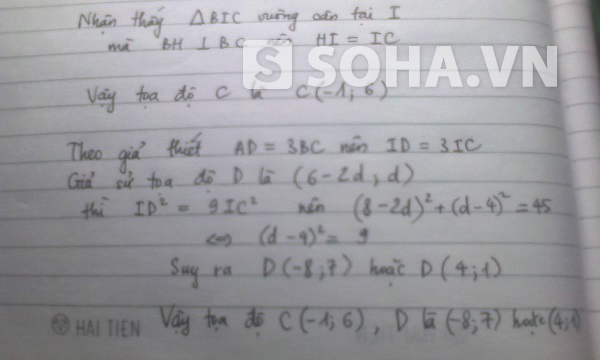 Nhận thấy △BIC vuông cân tại I
mà BH ⊥ BC nên HI = IC
SOHA.VN
Vậy tọa độ C là C(-1; 6)
Theo giả thiết AD = 3BC nên ID = 3IC
Giả sử tọa độ D là (6-2d, d)
thì ID² = 9IC² nên (8-2d)² + (d-4)² = 45
<=> (d-4)² = 9
Suy ra D(-8; 7) hoặc D(4; 1)
HAI TIEN
Vậy tọa độ C(-1; 6), D là (-8; 7) hoặc (4; 1)